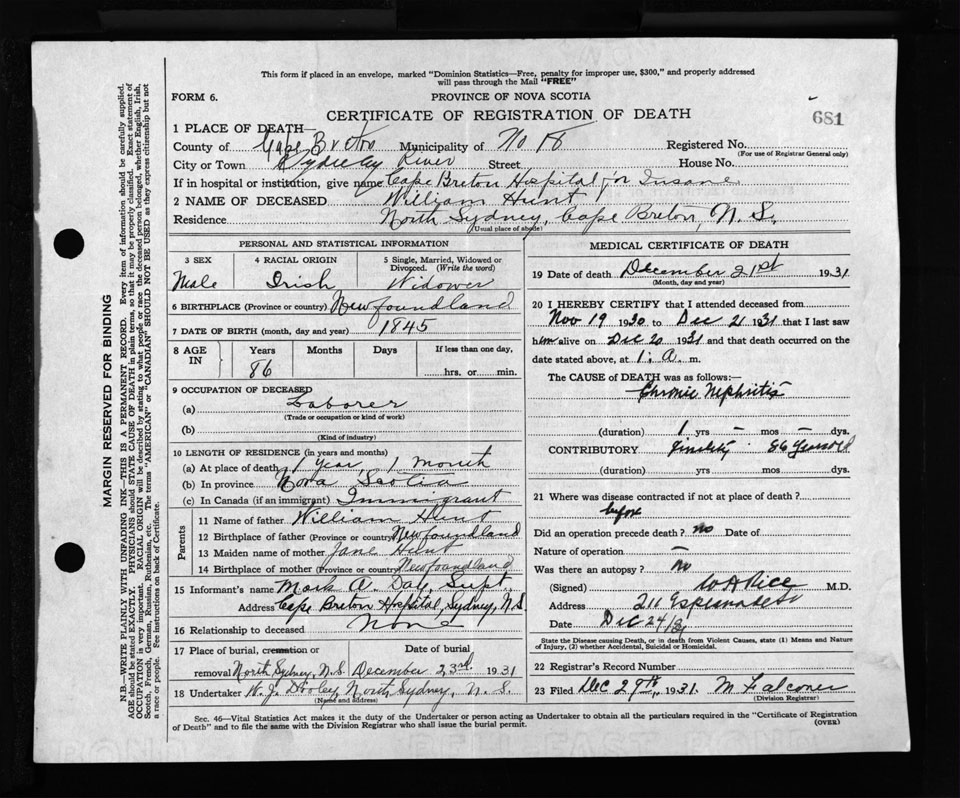 This form if placed in an envelope, marked "Dominion Statistics—Free, penalty for improper use, $300," and properly addressed
will pass through the Mail "FREE"
FORM 6.
PROVINCE OF NOVA SCOTIA
CERTIFICATE OF REGISTRATION OF DEATH
681
1 PLACE OF DEATH—
County of Cape Breton Municipality of No 18 Registered No.
(For use of Registrar General only)
City or Town Sydney River Street House No.
If in hospital or institution, give name Cape Breton Hospital for Insane
2 NAME OF DECEASED William Hunt
Residence North Sydney, Cape Breton, N. S.
(Usual place of abode)
PERSONAL AND STATISTICAL INFORMATION
3 SEX 4 RACIAL ORIGIN 5 Single, Married, Widowed or
Divorced. (Write the word)
Male Irish Widower
6 BIRTHPLACE (Province or country) Newfoundland
7 DATE OF BIRTH (month, day and year) 1845
8 AGE IN Years Months Days If less than one day,
86 hrs. or min.
9 OCCUPATION OF DECEASED
(a) Laborer
(Trade or occupation or kind of work)
(b)
(Kind of industry)
10 LENGTH OF RESIDENCE (in years and months)
(a) At place of death 1 Year, 1 Month
(b) In province Nova Scotia
(c) In Canada (if an immigrant) Immigrant
Parents
11 Name of father William Hunt
12 Birthplace of father (Province or country) Newfoundland
13 Maiden name of mother Jane Hunt
14 Birthplace of mother (Province or country) Newfoundland
15 Informant's name Mark A. Daley, Supt
Address Cape Breton Hospital, Sydney, N.S.
16 Relationship to deceased None
17 Place of burial, cremation or Date of burial
removal North Sydney, N.S. December 23rd. 1931
18 Undertaker W. J. Dooley, North Sydney, N. S.
(Name and address)
MEDICAL CERTIFICATE OF DEATH
19 Date of death December 21st 1931
(Month, day and year)
20 I HEREBY CERTIFY that I attended deceased from
Nov 19 1930 to Dec 21 1931 that I last saw
him alive on Dec 20 1931 and that death occurred on the
date stated above, at 1: a. m.
The CAUSE of DEATH was as follows:—
Chronic Nephritis
(duration) 1 yrs — mos — dys.
CONTRIBUTORY Senility 86 Years old
(duration) yrs. mos. dys.
21 Where was disease contracted if not at place of death?
before
Did an operation precede death? No Date of
Nature of operation —
Was there an autopsy? No
(Signed) W H Rice M.D.
Address 211 Esplanade
Date Dec 24/31
State the Disease causing Death, or in death from Violent Causes, state (1) Means and Nature
of Injury, (2) whether Accidental, Suicidal or Homicidal.
22 Registrar's Record Number
23 Filed Dec 29th, 1931. M Falconer
(Division Registrar)
Sec. 46—Vital Statistics Act makes it the duty of the Undertaker or person acting as Undertaker to obtain all the particulars required in the "Certificate of Registration
of Death" and to file the same with the Division Registrar who shall issue the burial permit.
(OVER)
MARGIN RESERVED FOR BINDING
N.B.—WRITE PLAINLY WITH UNFADING INK—THIS IS A PERMANENT RECORD. Every item of information should be carefully supplied.
AGE should be stated EXACTLY. PHYSICIANS should STATE CAUSE OF DEATH in plain terms, so that it may be properly classified. Exact statement of
OCCUPATION is very important. RACIAL ORIGIN will be described by stating to what people or race the deceased person belonged, whether English, Irish,
Scotch, French, German, Russian, Ruthenian, etc. The terms "AMERICAN" or "CANADIAN" SHOULD NOT BE USED as they express citizenship but not
a race or people. See instructions on back of Certificate.